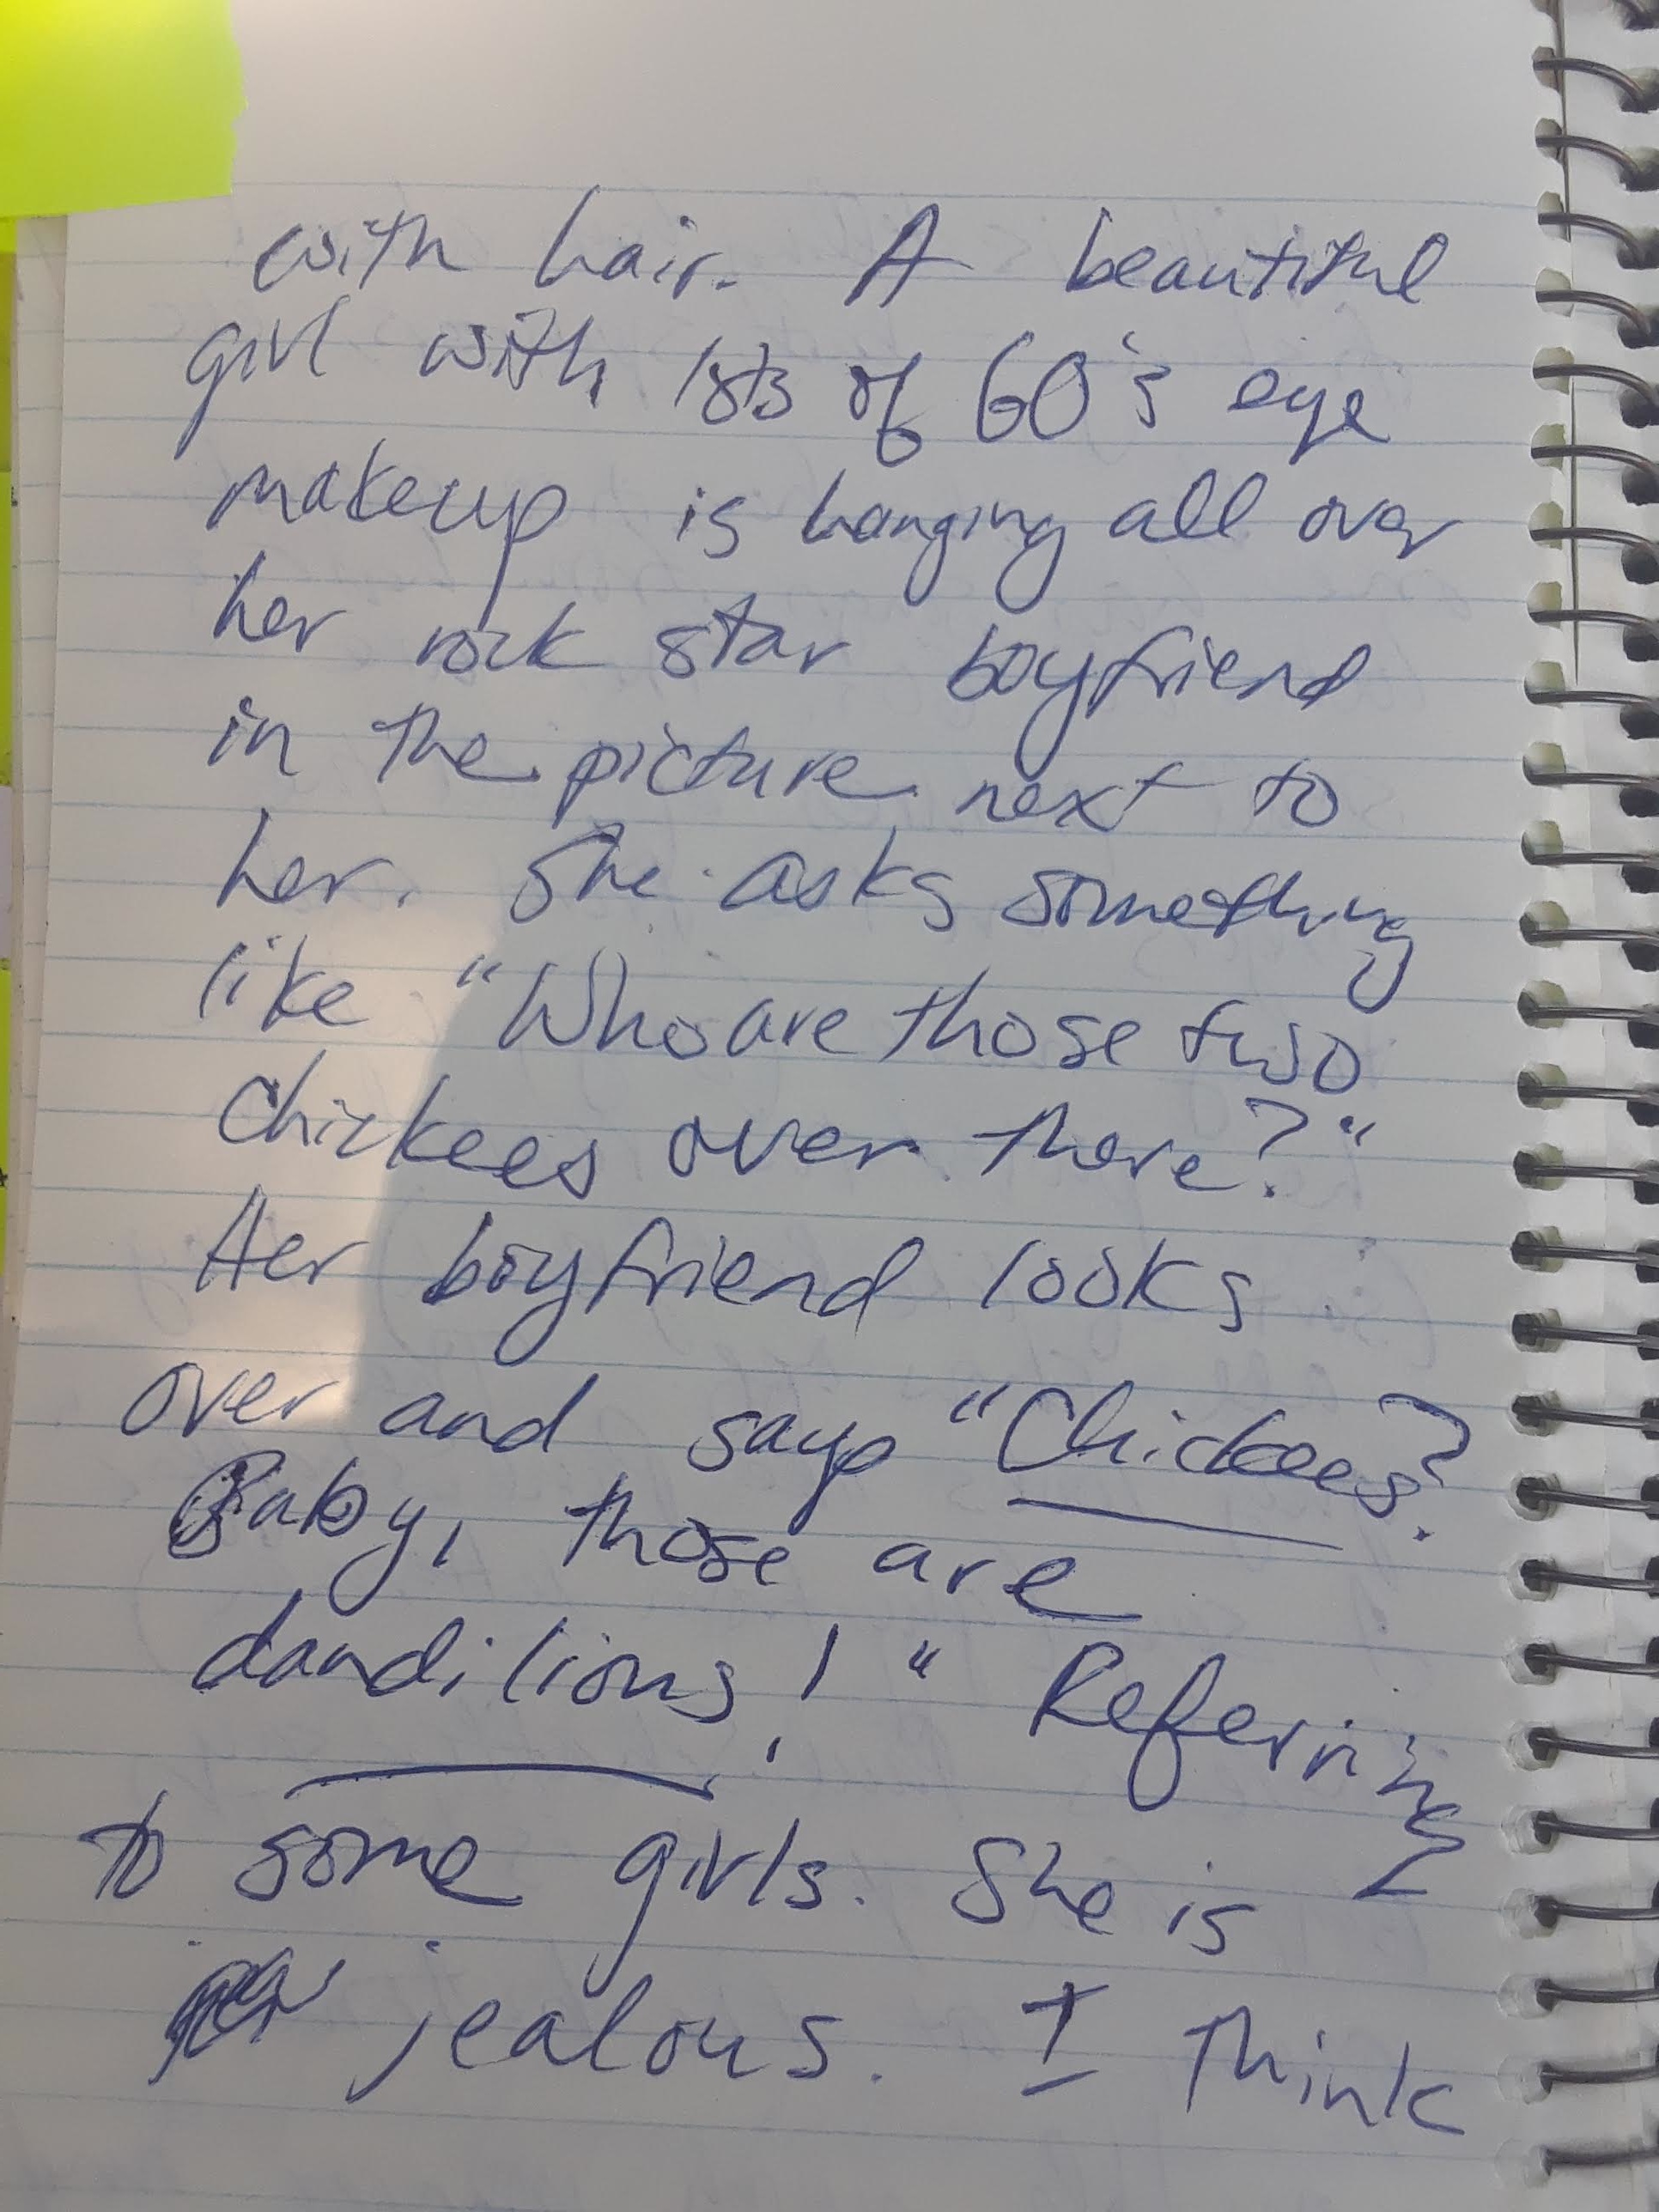 with hair. A beautiful
girl with lots of 60's eye
makeup is hanging all over
her rock star boyfriend
in the picture next to
her. She asks something
like "Who are those two
Chickees over there?"
Her boyfriend looks
over and says "Chickees?
Baby, those are
dandilions!" Referring
to some girls. She is
jealous. I think